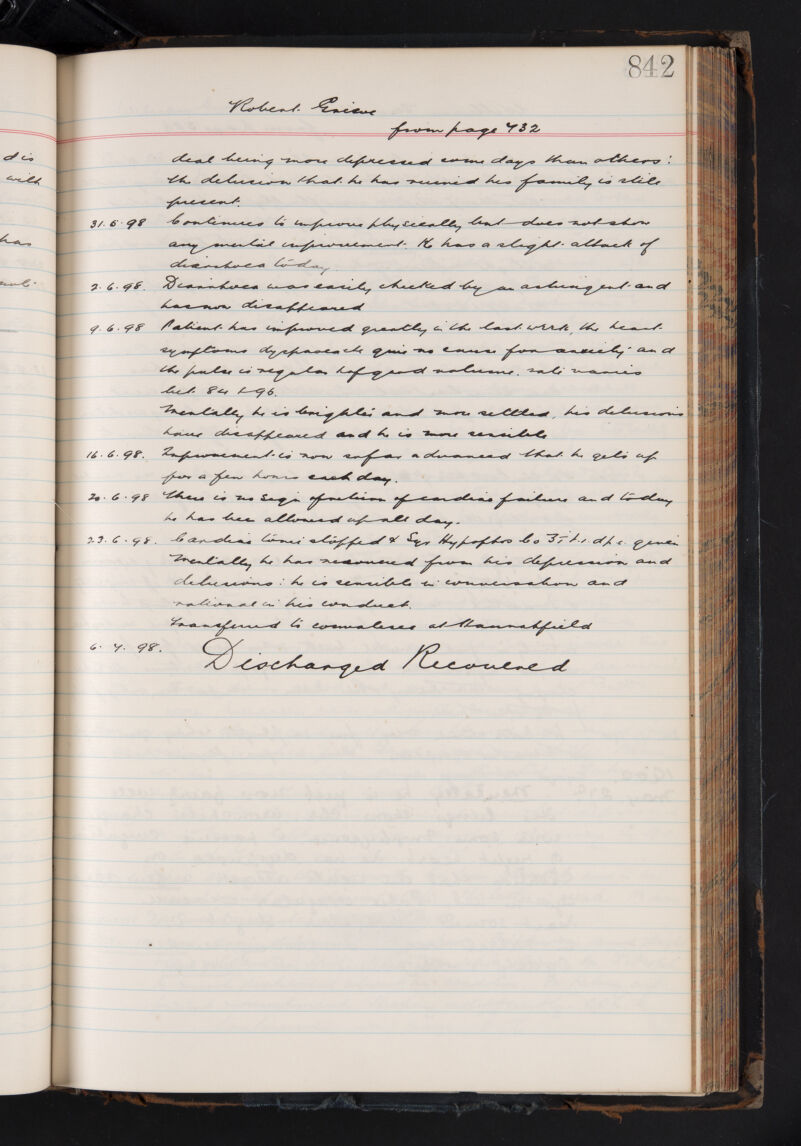 842
Robert Grieve
from page 732
deal being more depressed some days than others:
the delusion that he has ruined his family is still
present.
31.5.98 Continues to improve physically but does not show
any mental improvement. He has a slight attack of
diarrhoea today.
2.6.98. Diarrhoea was easily checked by an astringent and
has now disappeared
9.6.98 Patient has improved greatly in the last week, the heart
symptoms dyspnoea etc give no cause for anxiety and
the pulse is regular & of good volume, rate varies
bet. 84 & 96.
Mentally he is brighter and more settled, his delusions
have disappeared and he is more sensible
16.6.98. Improvement is now so far advanced that he gets up
for a few hours each day.
20.6.98 There is no sign of return of cardiac failure and today
he has been allowed up all day.
23.6.98. Cardiac tonic stopped & Syr Hypophos Co given
Mentally he has recovered from his depression and
delusions: he is sensible in conversation and
rational in his conduct.
Transferred to convalesce at Hannahfield
6.7.98. Discharged Recovered
dis
with
has
not